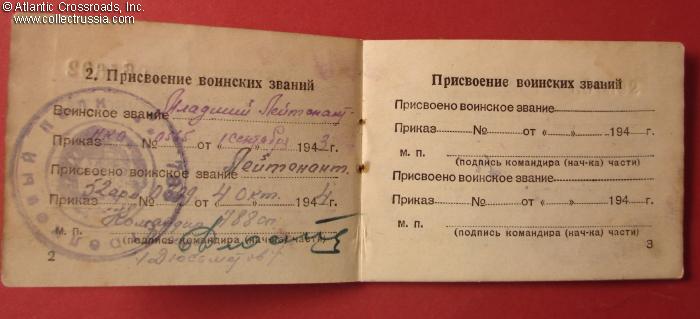 © Atlantic Crossroads, Inc.
www.collectrussia.com
2. Присвоение воинских званий
Воинское звание Младший Лейтенант
Приказ № 0565 от „1“ сентября 194 г.
Присвоено воинское звание Лейтенант.
Приказ 52 арм 0899 „4“ окт. 1944 г.
Командир 788 сп
м. п. (подпись командира (нач-ка) части)
2
Присвоение воинских званий
Присвоено воинское звание
Приказ № от „ “ 194 г.
м. п. (подпись командира (нач-ка) части)
Присвоено воинское звание
Приказ № от „ “ 194 г.
м. п. (подпись командира (нач-ка) части)
3